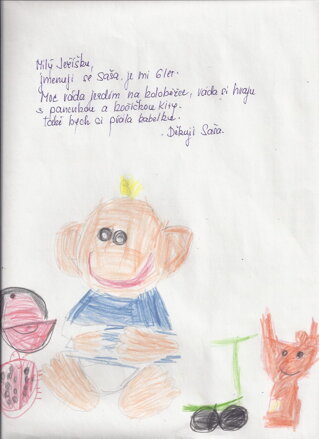 Milý Ježíšku,
jmenuji se Saša, je mi 6 let.
Moc ráda jezdím na koloběžce, ráda si hraju
s panenkou a kočičkou Kity.
Také bych si přála kabelku.
Děkuji Saša.